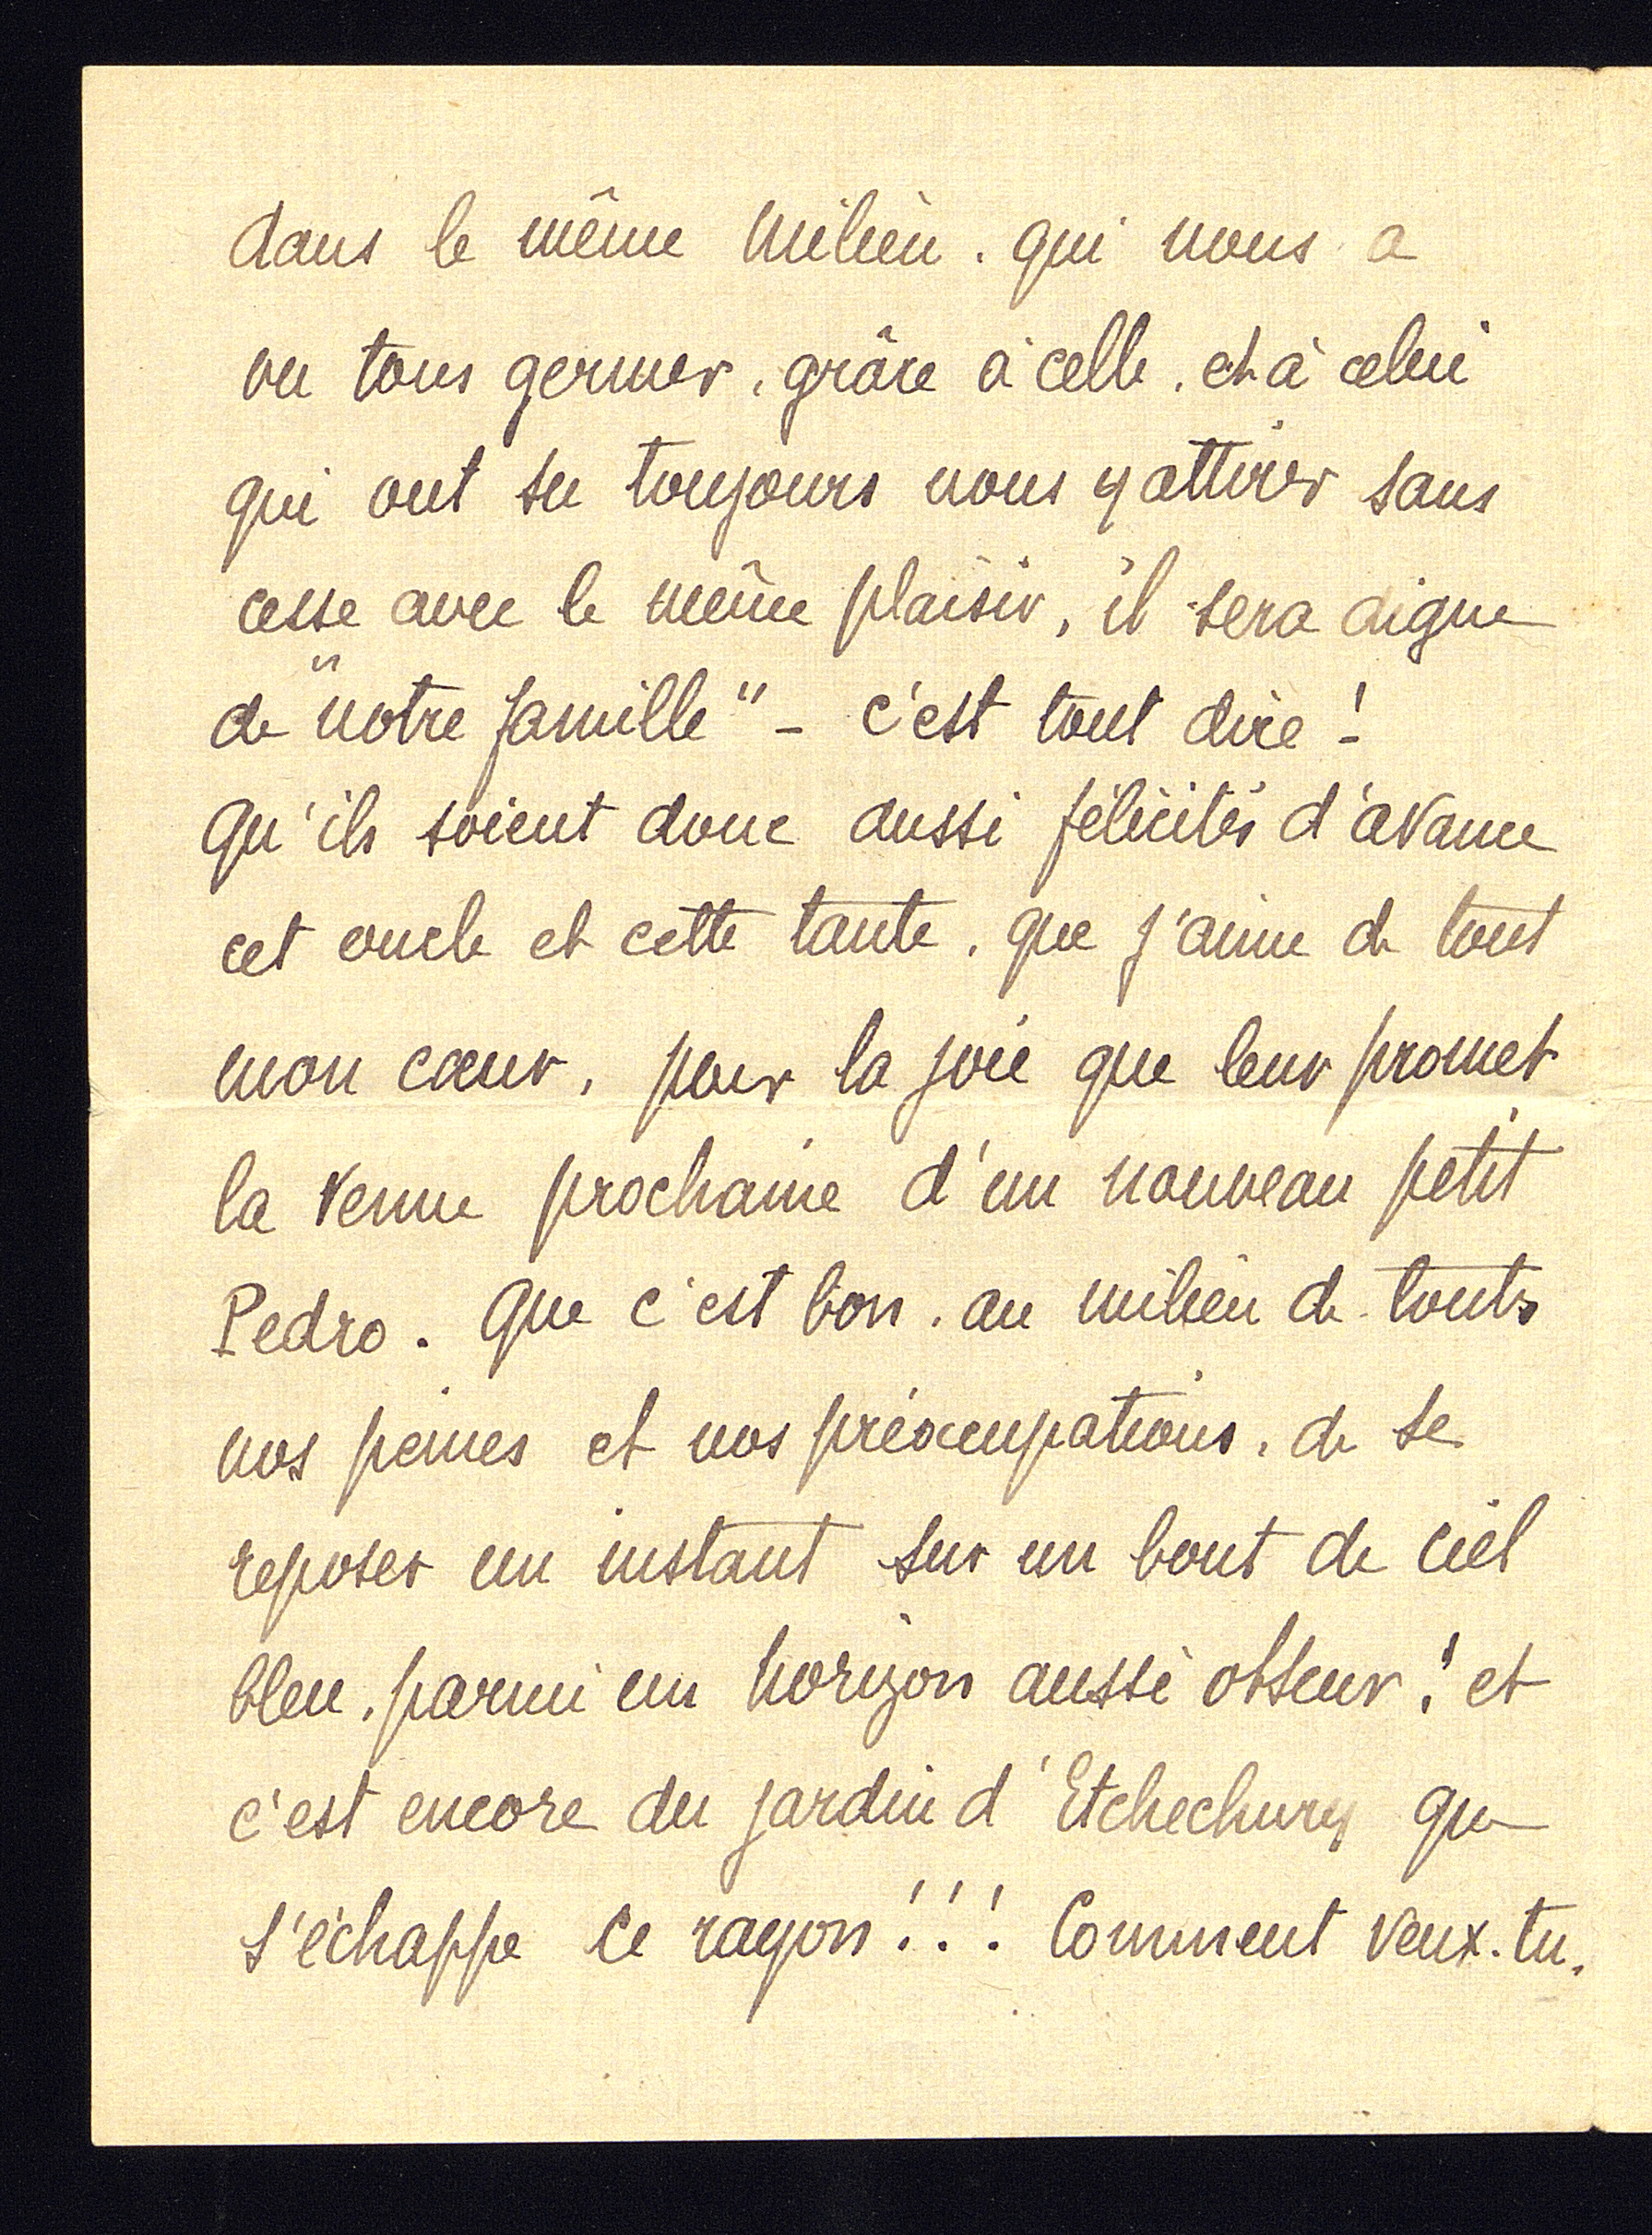 dans le même milieu. qui nous a
vu tous germer, grâce à celle, et à celui
qui ont su toujours nous y attirer sans
cesse avec le même plaisir, il sera digne
de "notre famille" - c'est tout dire !
Qu'ils soient donc aussi félicités d'avance
cet oncle et cette tante, que j'aime de tout
mon cœur, pour la joie que leur promet
la venue prochaine d'un nouveau petit
Pedro. Que c'est bon. au milieu de toutes
nos peines et nos préoccupations, de se
reposer un instant sur un bout de ciel
bleu, parmi un horizon aussi obscur ! et
c'est encore du jardin d'Etchechury que
s'échappe ce rayon !!! Comment veux-tu,